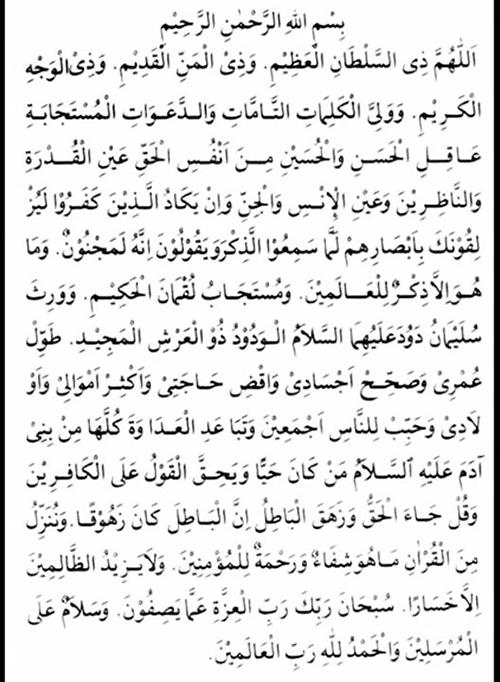 بِسْمِ اللهِ الرَّحْمٰنِ الرَّحِيْمِ
اَللّٰهُمَّ ذِى السُّلْطَانِ الْعَظِيْمِ. وَذِىْ الْمَنِّ الْقَدِيْمِ. وَذِىْ الْوَجْهِ
الْكَرِيْمِ. وَوَلِيِّ الْكَلِمَاتِ التَّامَّاتِ وَالدَّعَوَاتِ الْمُسْتَجَابَةِ
عَاقِلِ الْحَسَنِ وَالْحُسَيْنِ مِنْ اَنْفُسِ الْحَقِّ عَيْنِ الْقُدْرَةِ
وَالنَّاظِرِيْنَ وَعَيْنِ الْاِنْسِ وَالْجِنِّ وَاِنْ يَكَادُ الَّذِيْنَ كَفَرُوْا لَيُزْ
لِقُوْنَكَ بِاَبْصَارِهِمْ لَمَّا سَمِعُوْا الذِّكْرَ وَيَقُوْلُوْنَ اِنَّهُ لَمَجْنُوْنٌ. وَمَا
هُوَ اِلاَّ ذِكْرٌ لِلْعَالَمِيْنَ. وَمُسْتَجَابُ لُقْمَانَ الْحَكِيْمِ. وَوَرِثَ
سُلَيْمَانُ دَوُدَ عَلَيْهِمَا السَّلَامُ الْوَدُوْدُ ذُو الْعَرْشِ الْمَجِيْدِ. طَوِّلْ
عُمْرِىْ وَصَحِّحْ اَجْسَادِىْ وَاقْضِ حَاجَتِىْ وَاَكْثِرْ اَمْوَالِىْ وَاَوْ
لَادِىْ وَحَبِّبْ لِلنَّاسِ اَجْمَعِيْنَ وَتَبَا عَدِ الْعَدَا وَةَ كُلَّهَا مِنْ بَنِىْ
آدَمَ عَلَيْهِ السَّلَامُ مَنْ كَانَ حَيًّا وَيَحِقَّ الْقَوْلُ عَلَى الْكَافِرِيْنَ
وَقُلْ جَاءَ الْحَقُّ وَزَهَقَ الْبَاطِلُ اِنَّ الْبَاطِلَ كَانَ زَهُوْقًا. وَنُنَزِّلُ
مِنَ الْقُرْاٰنِ مَا هُوَ شِفَاءٌ وَرَحْمَةٌ لِلْمُؤْمِنِيْنَ. وَلَا يَزِيْدُ الظَّالِمِيْنَ
اِلاَّ خَسَارًا. سُبْحَانَ رَبِّكَ رَبِّ الْعِزَّةِ عَمَّا يَصِفُوْنَ. وَسَلَامٌ عَلَى
الْمُرْسَلِيْنَ وَالْحَمْدُ لِلّٰهِ رَبِّ الْعَالَمِيْنَ.